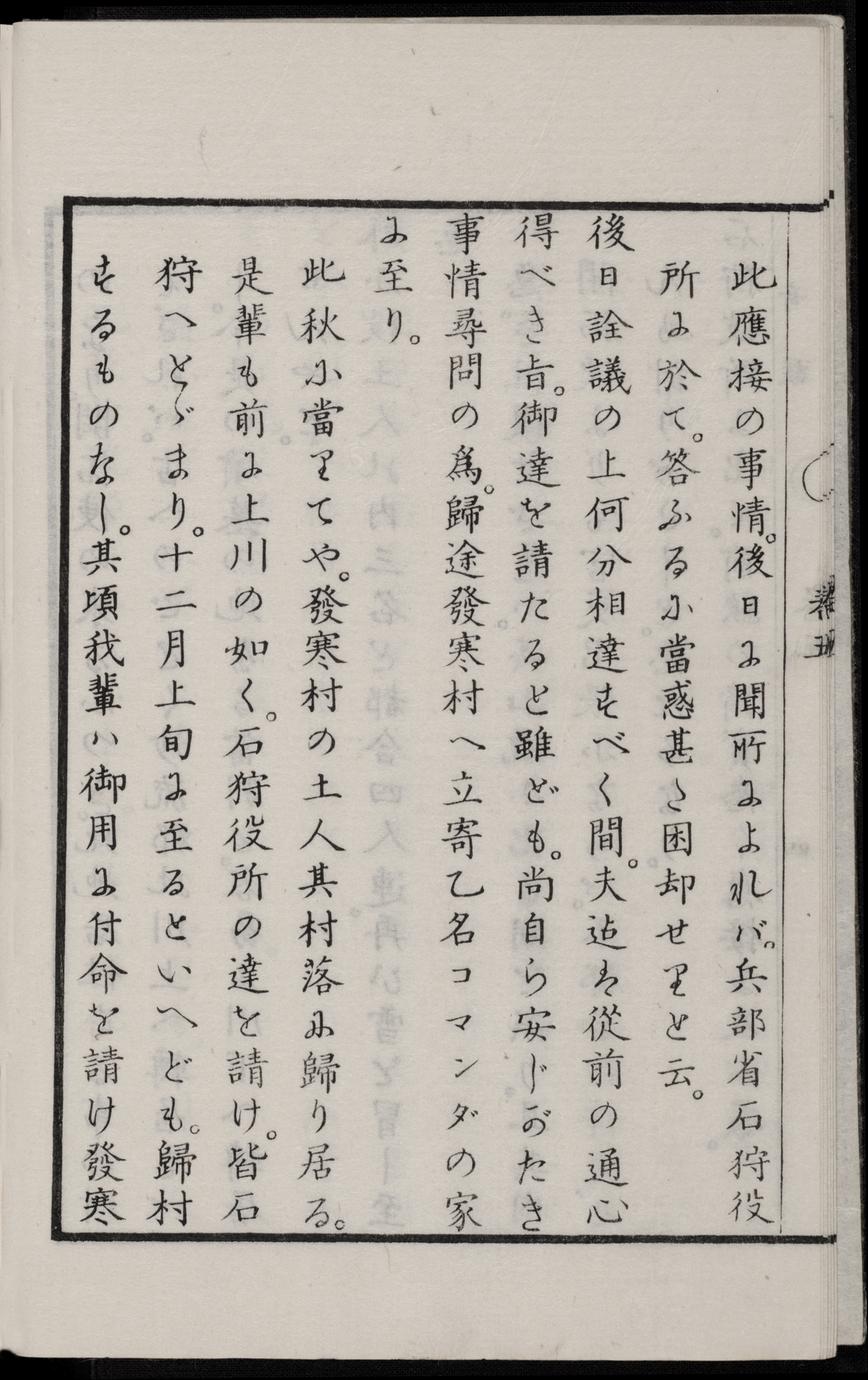 此應接の事情。後日に聞所によれバ。兵部省石狩役
所に於て。答ふるに當惑甚た困却せりと云。
後日詮議の上何分相達すべく間。夫迠は從前の通心
得べき旨。御達を請たると雖ども。尚自ら安じがたき
事情尋問の爲。歸途發寒村へ立寄乙名コマンダの家
に至り。
此秋に當りてや。發寒村の土人其村落に歸り居る。
是輩も前に上川の如く。石狩役所の達を請け。皆石
狩へとゞまり。十二月上旬に至るといへども。歸村
するものなし。其頃我輩ハ御用に付命を請け發寒